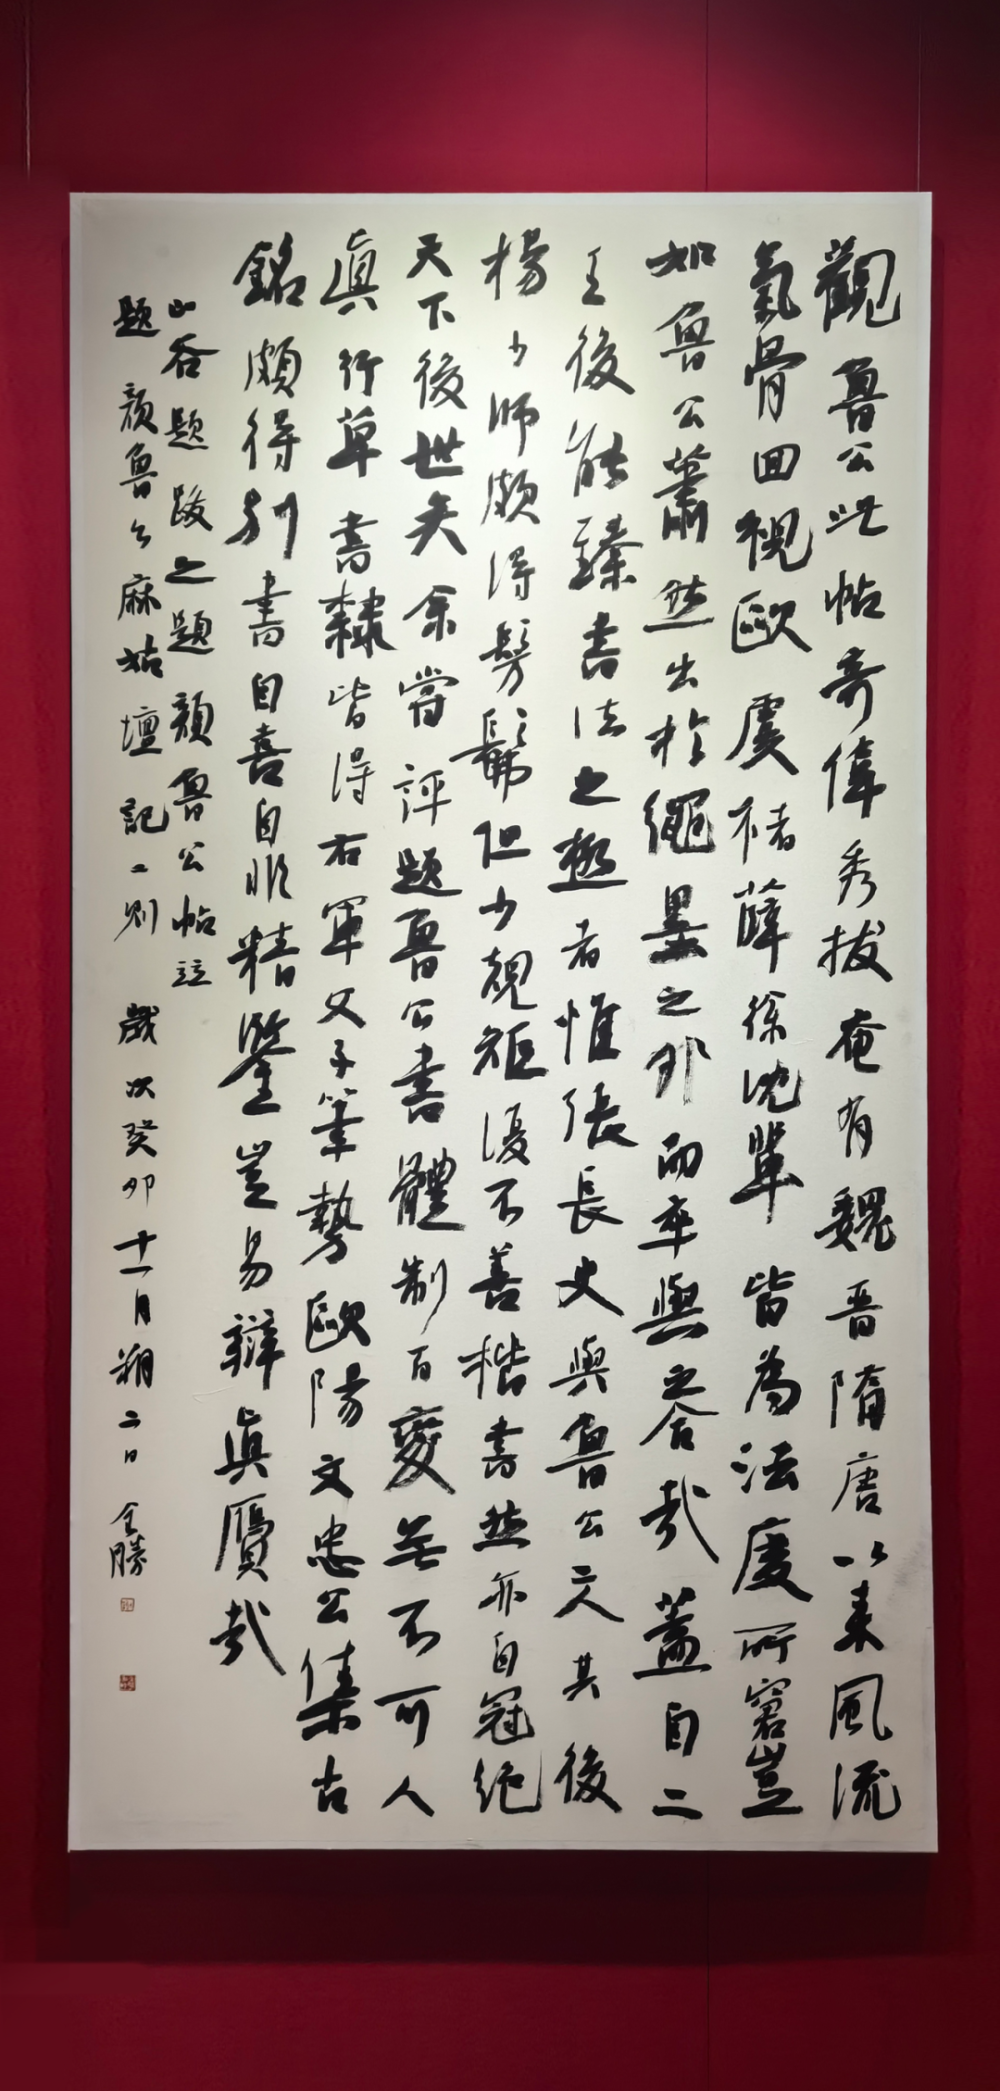 觀魯公此帖奇偉秀拔奄有魏晉隋唐以來風流
氣骨回視歐虞褚薛徐沈輩皆為法度所窘豈
如魯公蕭然出於繩墨之外而卒與之合哉蓋自二
王後能臻書法之極者惟張長史與魯公二人其後
楊少師頗得髣髴但少規矩復不善楷書然亦自冠絕
天下後世矣余嘗評題魯公書體制百變無不可人
真行草書隸皆得右軍父子筆勢歐陽文忠公集古
銘頗得別書自喜自非精鑒豈易辯真贗哉
山谷題跋之題顏魯公帖並
題顏魯公麻姑壇記二則 歲次癸卯十一月朔二日 全勝